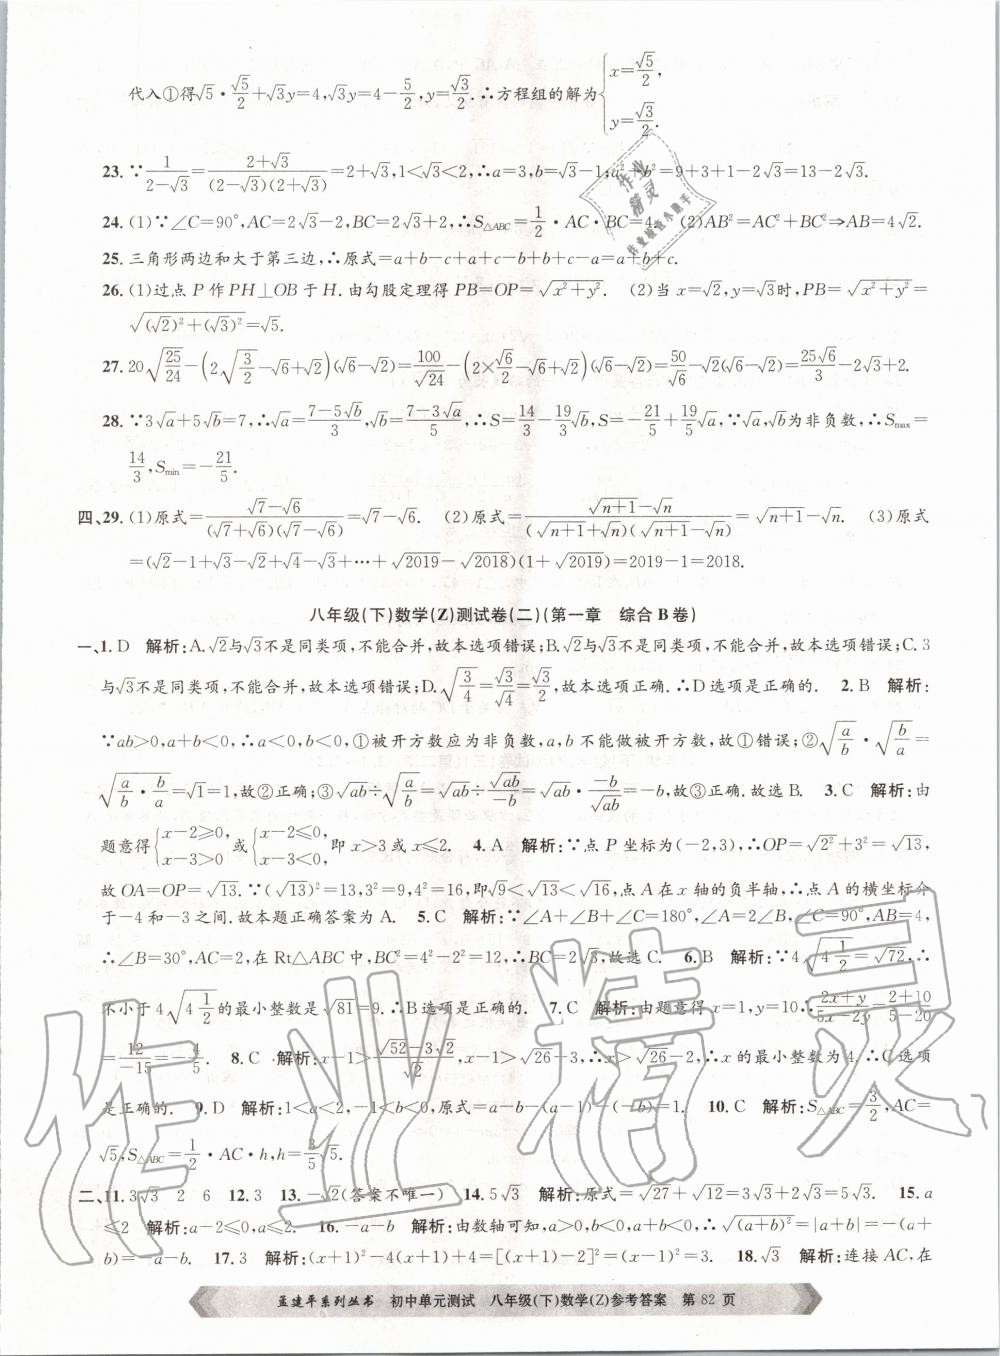 代入①得√5·√5/2+√3y=4,√3y=4-5/2,y=√3/2.∴方程组的解为{x=√5/2, y=√3/2.
23.∵1/(2-√3)=(2+√3)/((2-√3)(2+√3))=2+√3,1<√3<2,∴a=3,b=√3-1;a²+b²=9+3+1-2√3=13-2√3.
24.(1)∵∠C=90°,AC=2√3-2,BC=2√3+2,∴S△ABC=1/2·AC·BC=4. (2)AB²=AC²+BC²⇒AB=4√2.
25.三角形两边和大于第三边,∴原式=a+b-c+a+c-b+b+c-a=a+b+c.
26.(1)过点P作PH⊥OB于H.由勾股定理得PB=OP=√(x²+y²). (2)当x=√2,y=√3时,PB=√(x²+y²)=
√((√2)²+(√3)²)=√5.
27.20√(25/24)-(2√(3/2)-√6+√2)(√6-√2)=100/√24-(2×√6/2-√6+√2)(√6-√2)=50/√6-√2(√6-√2)=25√6/3-2√3+2.
28.∵3√a+5√b=7,∴√a=(7-5√b)/3,√b=(7-3√a)/5,∴S=14/3-19/3√b,S=-21/5+19/5√a,∵√a,√b为非负数,∴Smax=
14/3,Smin=-21/5.
四、29.(1)原式=(√7-√6)/((√7+√6)(√7-√6))=√7-√6. (2)原式=(√(n+1)-√n)/((√(n+1)+√n)(√(n+1)-√n))=√(n+1)-√n. (3)原式
=(√2-1+√3-√2+√4-√3+…+√2019-√2018)(1+√2019)=2019-1=2018.
八年级(下)数学(Z)测试卷(二)(第一章 综合B卷)
一、1.D 解析:A.√2与√3不是同类项,不能合并,故本选项错误;B.√2与√3不是同类项,不能合并,故本选项错误;C.3
与√3不是同类项,不能合并,故本选项错误;D.√(3/4)=√3/√4=√3/2,故本选项正确.∴D选项是正确的. 2.B 解析:
∵ab>0,a+b<0,∴a<0,b<0,①被开方数应为非负数,a,b不能做被开方数,故①错误;②√(a/b)·√(b/a)=
√(a/b·b/a)=√1=1,故②正确;③√ab÷√(a/b)=√ab÷√ab/-b=√ab·-b/√ab=-b,故③正确.故选B. 3.C 解析:由
题意得{x-2≥0, x-3>0或{x-2≤0, x-3<0,即x>3或x≤2. 4.A 解析:∵点P坐标为(-2,3),∴OP=√(2²+3²)=√13,
故OA=OP=√13.∵(√13)²=13,3²=9,4²=16,即√9<√13<√16,点A在x轴的负半轴,∴点A的横坐标介
于-4和-3之间.故本题正确答案为A. 5.C 解析:∵∠A+∠B+∠C=180°,∠A=2∠B,∠C=90°,AB=4,
∴∠B=30°,AC=2,在Rt△ABC中,BC²=4²-2²=12,∴BC=2√3,故选C. 6.B 解析:∵4√(4 1/2)=√72,∴
不小于4√(4 1/2)的最小整数是√81=9.∴B选项是正确的. 7.C 解析:由题意得x=1,y=10∴(2x+y)/(5x-2y)=(2+10)/(5-20)
=12/-15=-4/5. 8.C 解析:x-1>(√52-3√2)/√2,x-1>√26-3,∴x>√26-2,∴x的最小整数为4.∴C选项
是正确的. 9.D 解析:1<a<2,-1<b<0,原式=a-b-(a-1)-(-b)=1. 10.C 解析:S△ABC=3/2,AC=
√5,S△ABC=1/2·AC·h,h=3/5√5.
二、11.3√3 2 6 12.3 13.-√2(答案不唯一) 14.5√3 解析:原式=√27+√12=3√3+2√3=5√3. 15.a
≤2 解析:a-2≤0,a≤2. 16.-a-b 解析:由数轴可知,a>0,b<0,a+b<0,∴√((a+b)²)=|a+b|=-(a+
b)=-a-b. 17.3 解析:(x+1)²-4(x+1)+4=[(x+1)-2]²=(x-1)²=3. 18.√3 解析:连接AC,在
孟建平系列丛书 初中单元测试 八年级(下)数学(Z)参考答案 第82页
作业精灵
作业
精灵
作业检查小助手